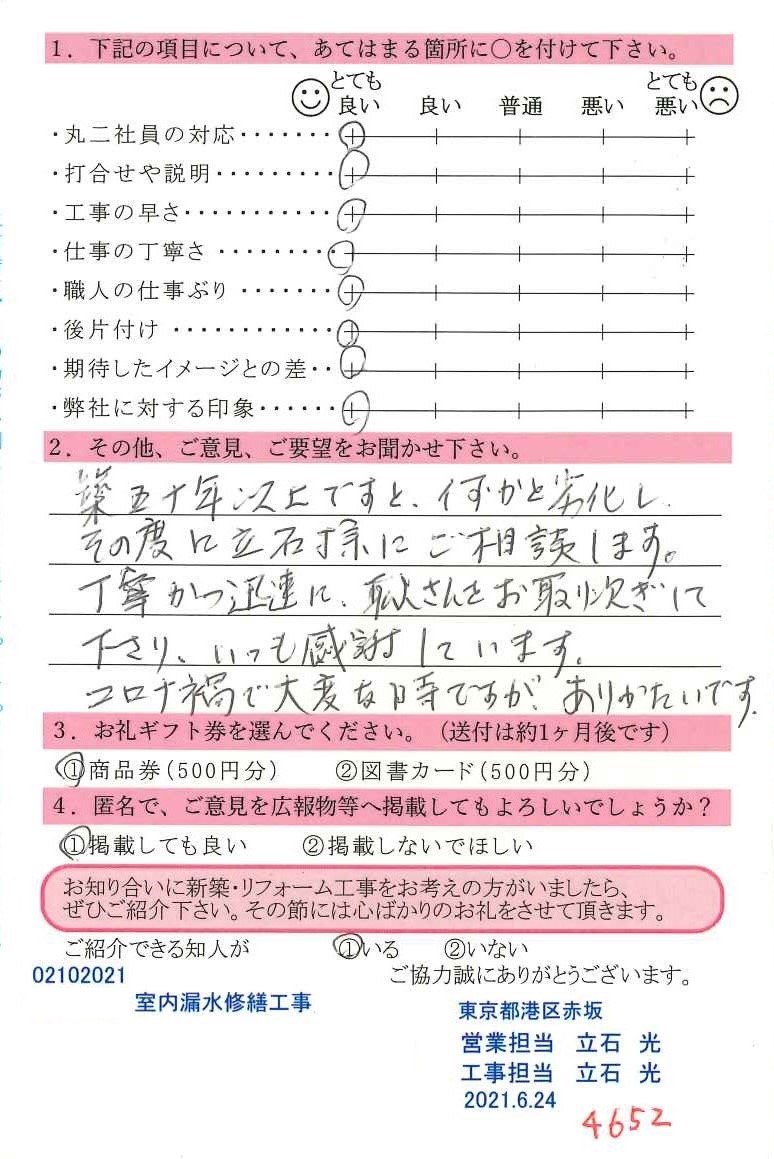 1．下記の項目について、あてはまる箇所に○を付けて下さい。
とても良い 良い 普通 悪い とても悪い
・丸二社員の対応・・・・・・・
・打合せや説明・・・・・・・・・
・工事の早さ・・・・・・・・・・・
・仕事の丁寧さ ・・・・・・・・・
・職人の仕事ぶり ・・・・・・・
・後片付け ・・・・・・・・・・・・
・期待したイメージとの差・・
・弊社に対する印象・・・・・・
2．その他、ご意見、ご要望をお聞かせ下さい。
築五十年以上ですと、何かと劣化し
その度に立石様にご相談します。
丁寧かつ迅速に、職人さんをお取り次ぎして
下さり、いつも感謝しています。
コロナ禍で大変な時ですが、ありがたいです。
3．お礼ギフト券を選んでください。（送付は約1ヶ月後です）
①商品券（500円分） ②図書カード（500円分）
4．匿名で、ご意見を広報物等へ掲載してもよろしいでしょうか？
①掲載しても良い ②掲載しないでほしい
お知り合いに新築・リフォーム工事をお考えの方がいましたら、
ぜひご紹介下さい。その節には心ばかりのお礼をさせて頂きます。
ご紹介できる知人が ①いる ②いない
02102021 ご協力誠にありがとうございます。
室内漏水修繕工事 東京都港区赤坂
営業担当 立石 光
工事担当 立石 光
2021.6.24
4652